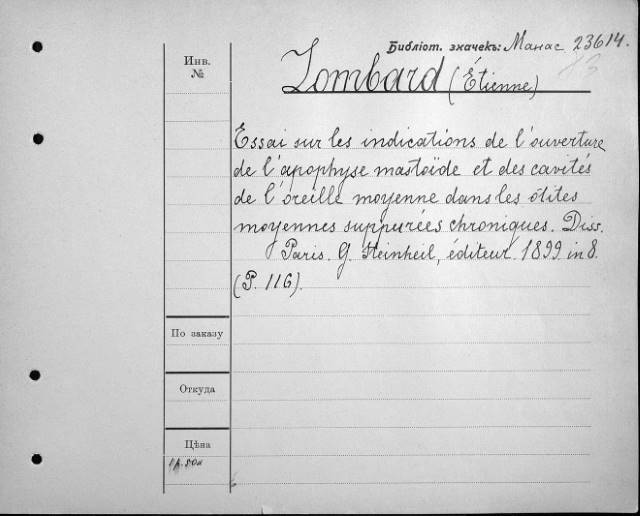 Библіот. значекъ: Манас 23614.
Инв.
№
Lombard (Étienne)
Essai sur les indications de l'ouverture
de l'apophyse mastoïde et des cavités
de l'oreille moyenne dans les ôtites
moyennes suppurées chroniques. Diss.
Paris. G. Steinheil, éditeur. 1899 in 8.
(P. 116).
По заказу
Откуда
Цѣна